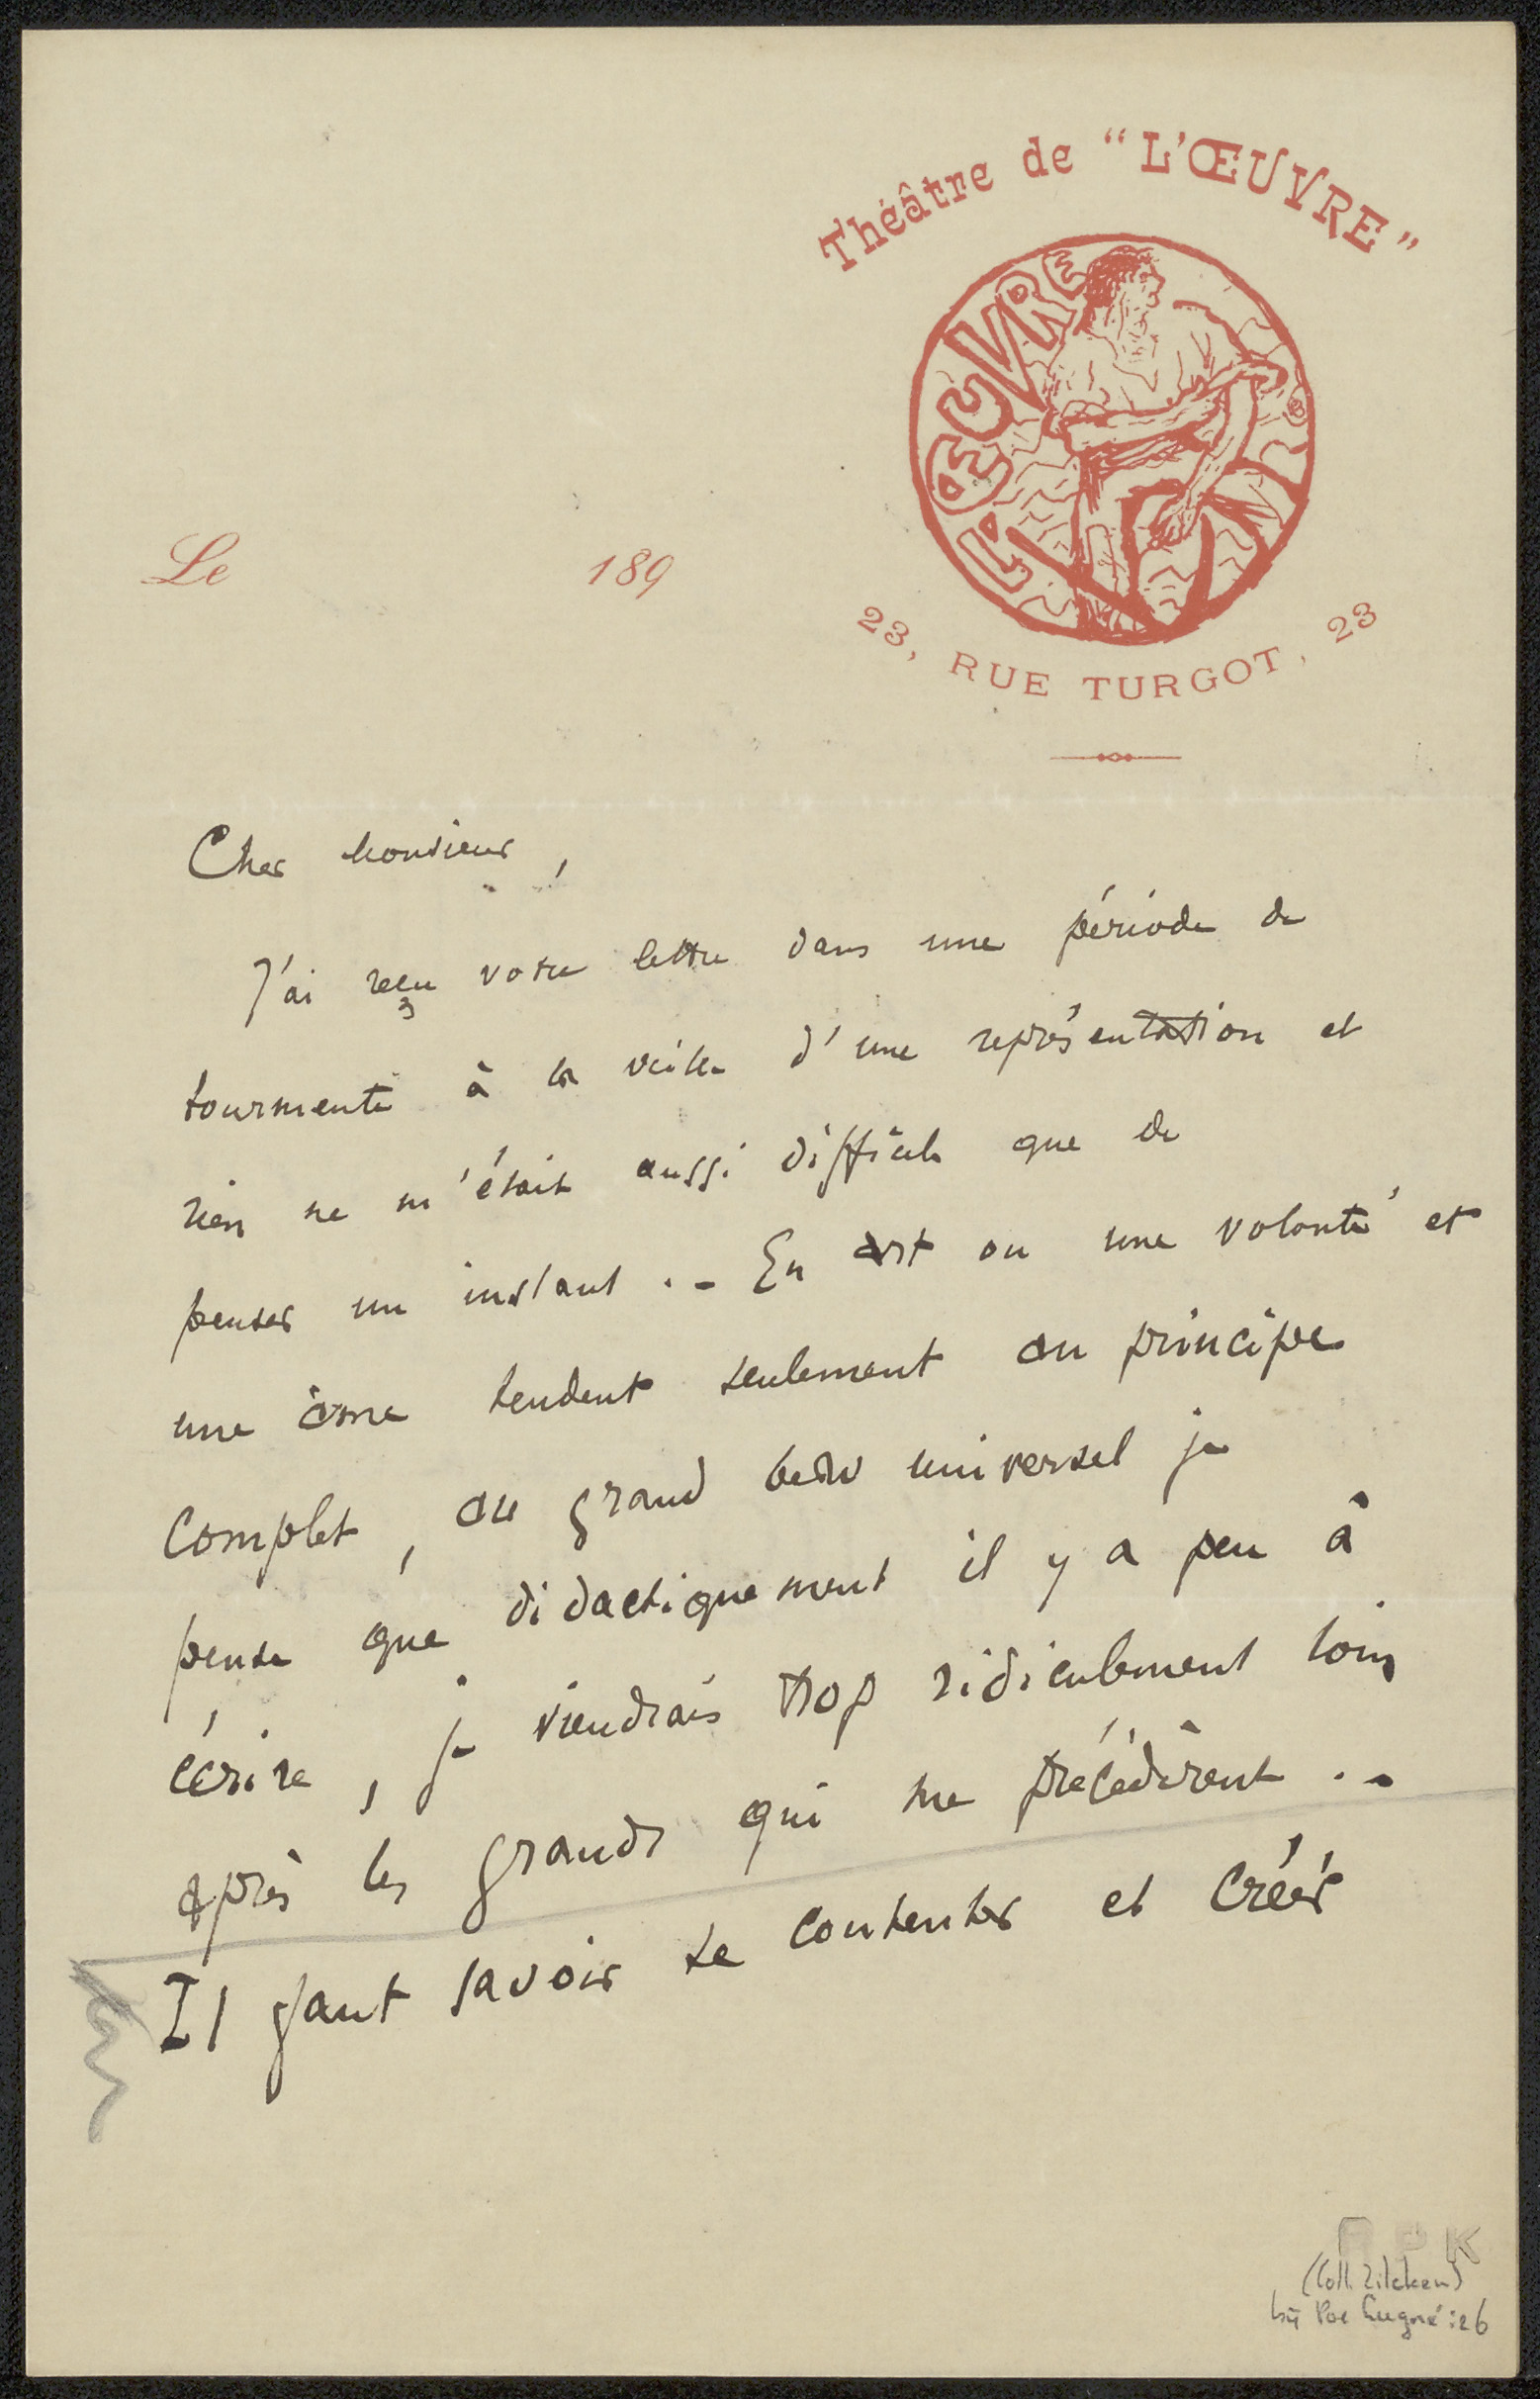 Théâtre de "L'ŒUVRE"
L'ŒUVRE
23, RUE TURGOT, 23
Le 189
Cher Monsieur,
J'ai reçu votre lettre dans une période de
tourmente à la veille d'une représentation et
rien ne m'était aussi difficile que de
penser un instant .- En art on une volonté et
une âme tendent seulement au principe
complet, au grand beau universel je
pense que didactiquement il y a peu à
écrire, je viendrais trop ridiculement loin
après les grands qui me précédèrent .-
Il faut savoir se contenter et créér
RPK
(Coll. Zilcken)
bij Poe Lugné : 26